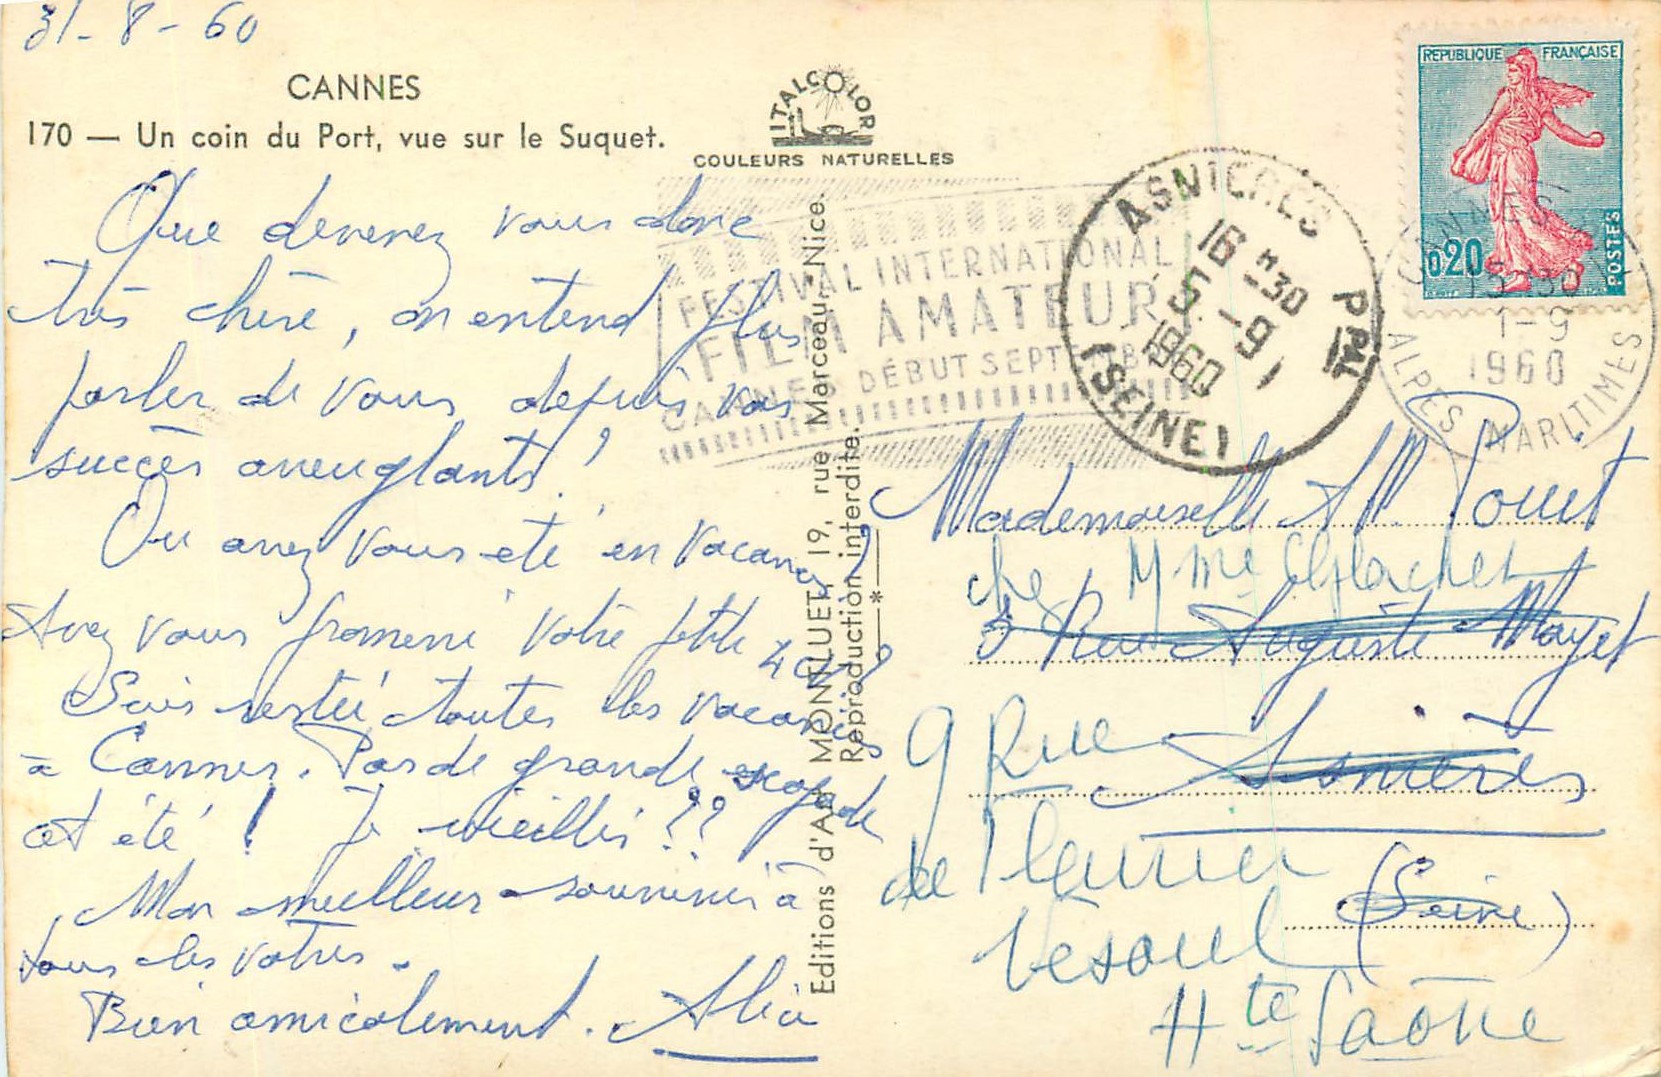 31-8-60
CANNES
170 — Un coin du Port, vue sur le Suquet.
ITALCOLOR
COULEURS NATURELLES
Que devenez vous donc
très chère, on entend plus
parler de vous depuis vos
succès aveuglants !
Ou avez vous été en vacances ?
Avez vous promené votre petite 4 CV ?
Suis restée toutes les vacances
à Cannes. Pas de grande escapade
cet été ! Je vieillis ??
Mon meilleur souvenir à
tous les votres.
Bien amicalement. Alice
Editions d'Art MONTLUET, 19, rue Marceau, Nice.
Reproduction interdite.
FESTIVAL INTERNATIONAL
FILM AMATEUR
CANNES DÉBUT SEPTEMBRE
ASNIERES PPAL
16 H30
5-9
1960
(SEINE)
REPUBLIQUE FRANÇAISE
0,20
POSTES
CANNES
15 H30
1-9
1960
ALPES MARITIMES
Mademoiselle
chez Mme
3 Rue Auguste Mayet
9 Rue
Asnières
de Fleurier
(Seine)
Vesoul
Hte Saône